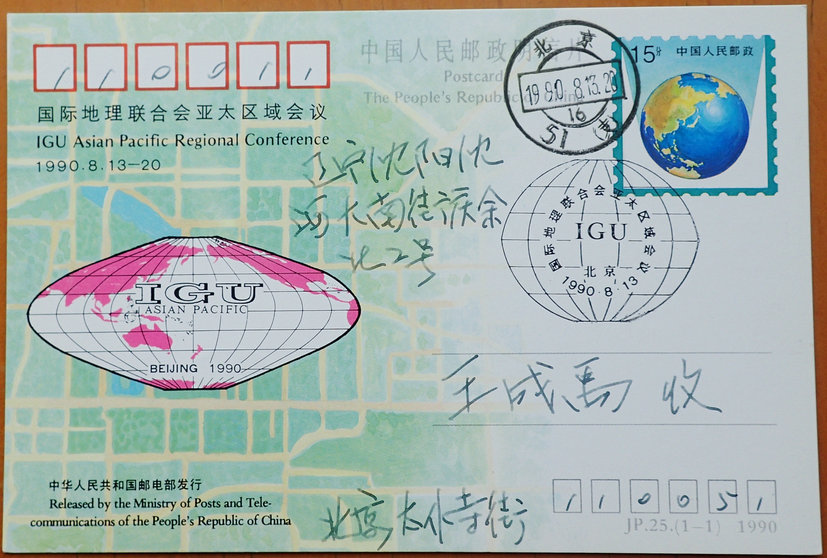 110011
国际地理联合会亚太区域会议
IGU Asian Pacific Regional Conference
1990.8.13—20
中国人民邮政明信片
Postcard
The People's Republic of China
北京
1990.8.13.20
16
51 (支)
15分 中国人民邮政
沈阳沈
河大南街
北2号
国际地理联合会亚太区域会议
IGU
北京
1990.8.13
IGU
ASIAN PACIFIC
BEIJING 1990
王成马 收
中华人民共和国邮电部发行
Released by the Ministry of Posts and Tele-
communications of the People's Republic of China
北京 大仆寺街
110051
JP.25.(1-1) 1990